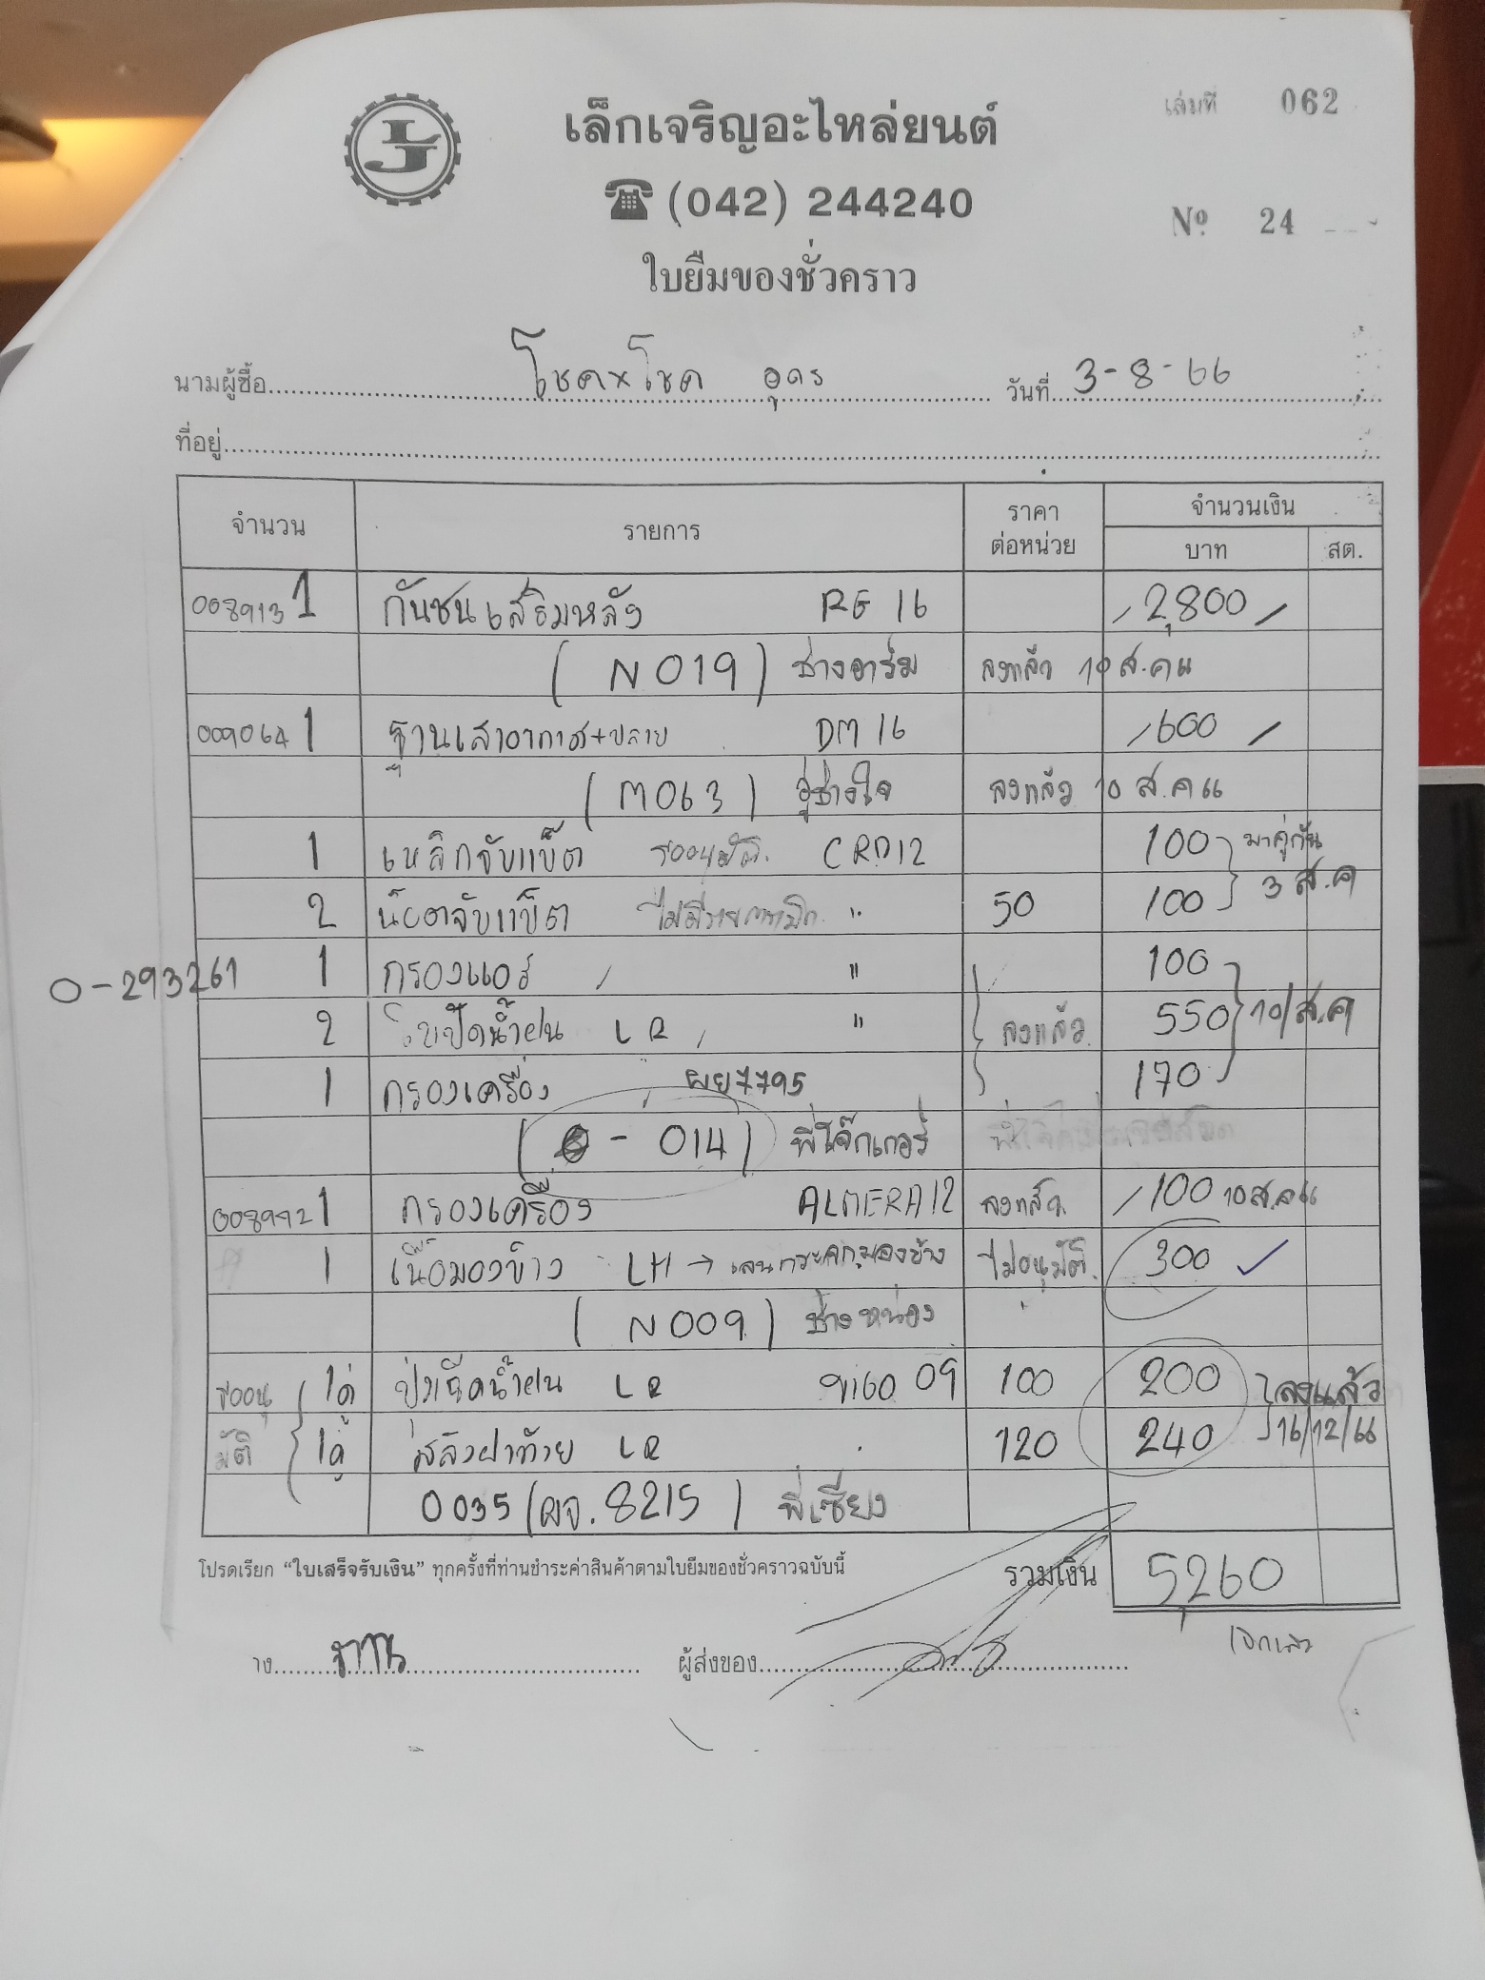 เล่มที่ 062
เล็กเจริญอะไหล่ยนต์
(042) 244240
Nº 24
ใบยืมของชั่วคราว
นามผู้ซื้อ โชค×โชค อุดร วันที่ 3-8-66
ที่อยู่
จำนวน รายการ ราคาต่อหน่วย จำนวนเงิน
บาท สต.
008913 1 กันชนเสริมหลัง RE 16 2,800
(N019) ช่างอาร์ม ลงแล้ว 10 ส.ค 66
009064 1 ฐานเสาอากาศ+ปลาย DM 16 600
(M063) อู่ช่างใจ ลงแล้ว 10 ส.ค 66
1 เหล็กจับแบ็ต รออนุมัติ. CRD12 100 มาคู่กัน
2 น็อตจับแบ็ต " 50 100 3 ส.ค
0-293261 1 กรองแอร์ " 100
2 ใบปัดน้ำฝน LR " ลงแล้ว. 550 10/ส.ค
1 กรองเครื่อง ผย7795 170
( - 014) พี่โจ๊กเกอร์
008992 1 กรองเครื่อง ALMERA12 ลงแล้ว. 100 10 ส.ค 66
1 เนื้อมองข้าง LH → เลนกระจกมองข้าง ไม่อนุมัติ. 300
(N009) ช่างหน่อง
รออนุ 1คู่ ปั๊มฉีดน้ำฝน LR vigo 09 100 200 ลงแล้ว
มัติ 1คู่ สลิงฝาท้าย LR 120 240 16/12/66
0035 (ผจ. 8215) พี่เซียง
โปรดเรียก “ใบเสร็จรับเงิน” ทุกครั้งที่ท่านชำระค่าสินค้าตามใบยืมของชั่วคราวฉบับนี้ รวมเงิน 5,260
ผู้ส่งของ